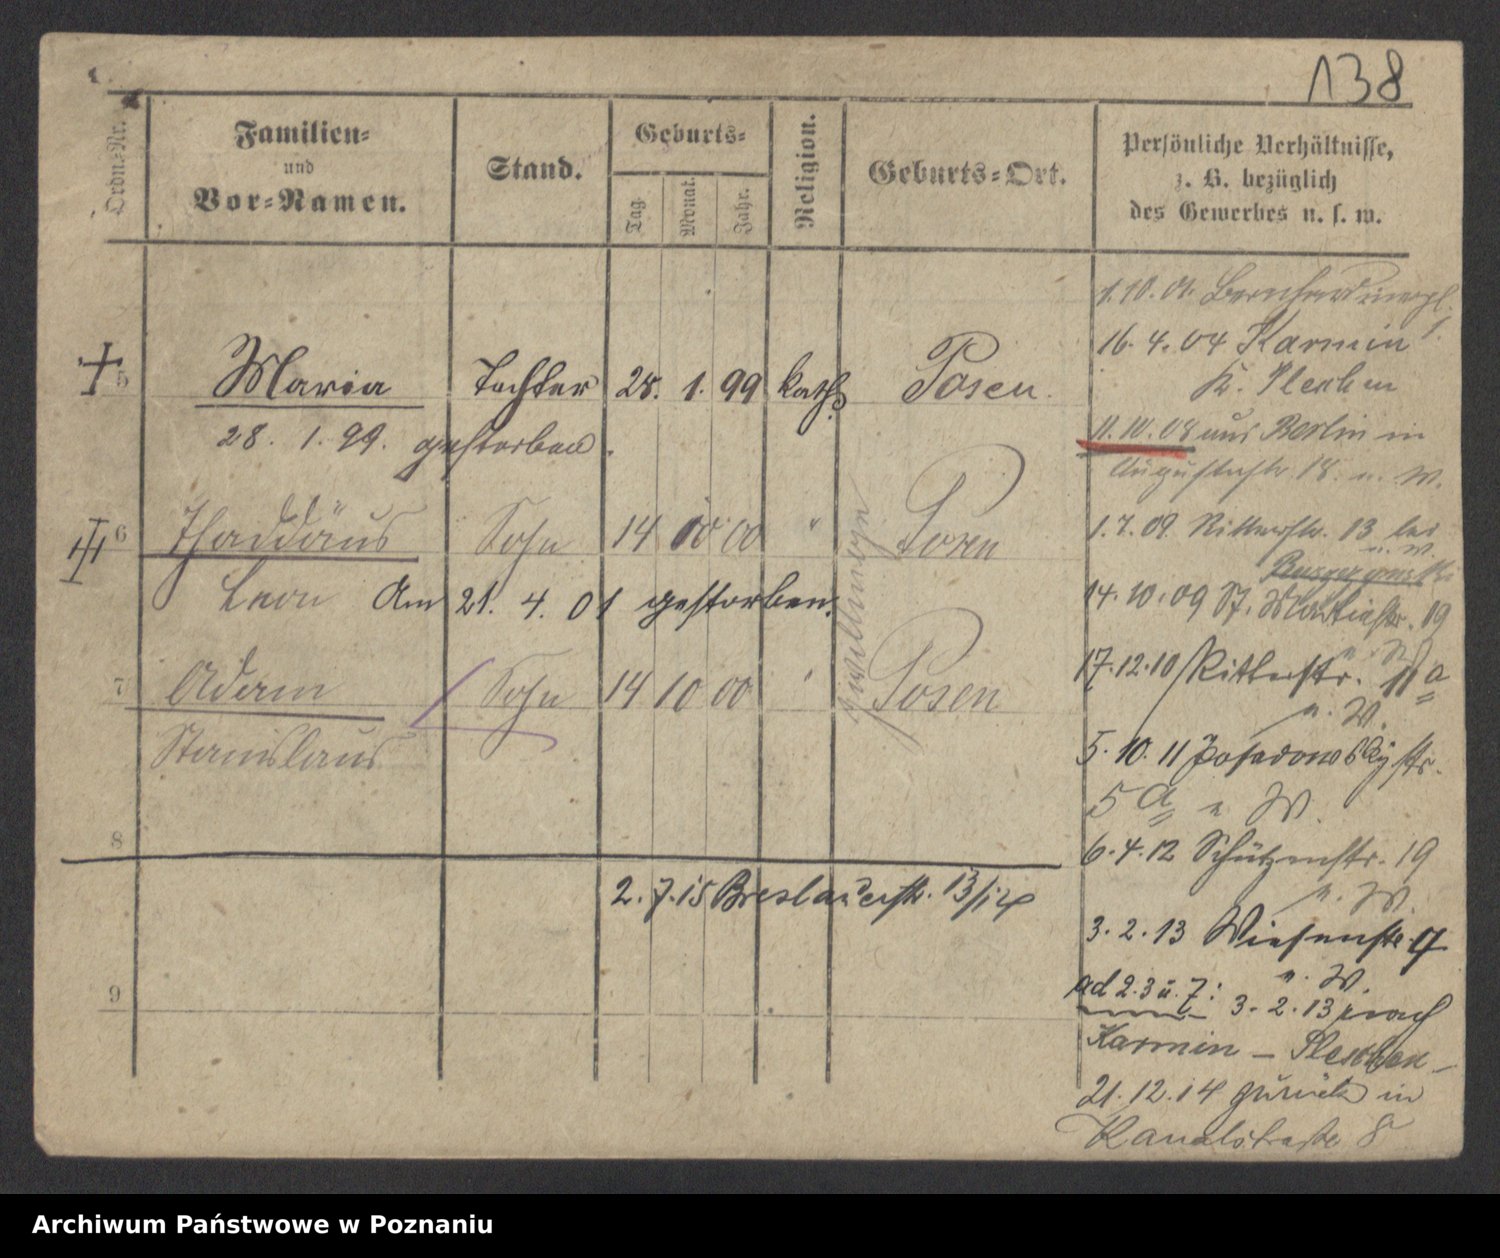 138
Ordn.-Nr.
Familien-
und
Vor-Namen.
Stand.
Geburts-
Tag.
Monat.
Jahr.
Religion.
Geburts-Ort.
Persönliche Verhältnisse,
z. B. bezüglich
des Gewerbes u. s. w.
5 Maria Tochter 28. 1. 99 kath. Posen.
28. 1. 99. gestorben.
6 Thaddäus Sohn 14 10 00 " Posen
Leon Am 21. 4. 01 gestorben.
7 Adam Sohn 14 10 00 " Posen
Stanislaus
Zwillinge
8
2. 7. 15 Breslauerstr. 13/14
9
1. 10. 01.
16. 4. 04 Karmin
Kr. Pleschen
11. 10. 08 aus Berlin in
Augustastr. 18. u. W.
1. 7. 09. Ritterstr. 13 bei
u. W.
14. 10. 09 St. Martinstr. 19
u. W.
17. 12. 10 Ritterstr. 11a
u. W.
5. 10. 11 Posadowskystr.
5a u W.
6. 4. 12 Schützenstr. 19
u. W.
3. 2. 13 Wiesenstr. 9
u. W.
ad 2. 3 u. 7: 3. 2. 13 nach
Karmin – Pleschen –
21. 12. 14 zurück in
Kanalstraße 8
Archiwum Państwowe w Poznaniu